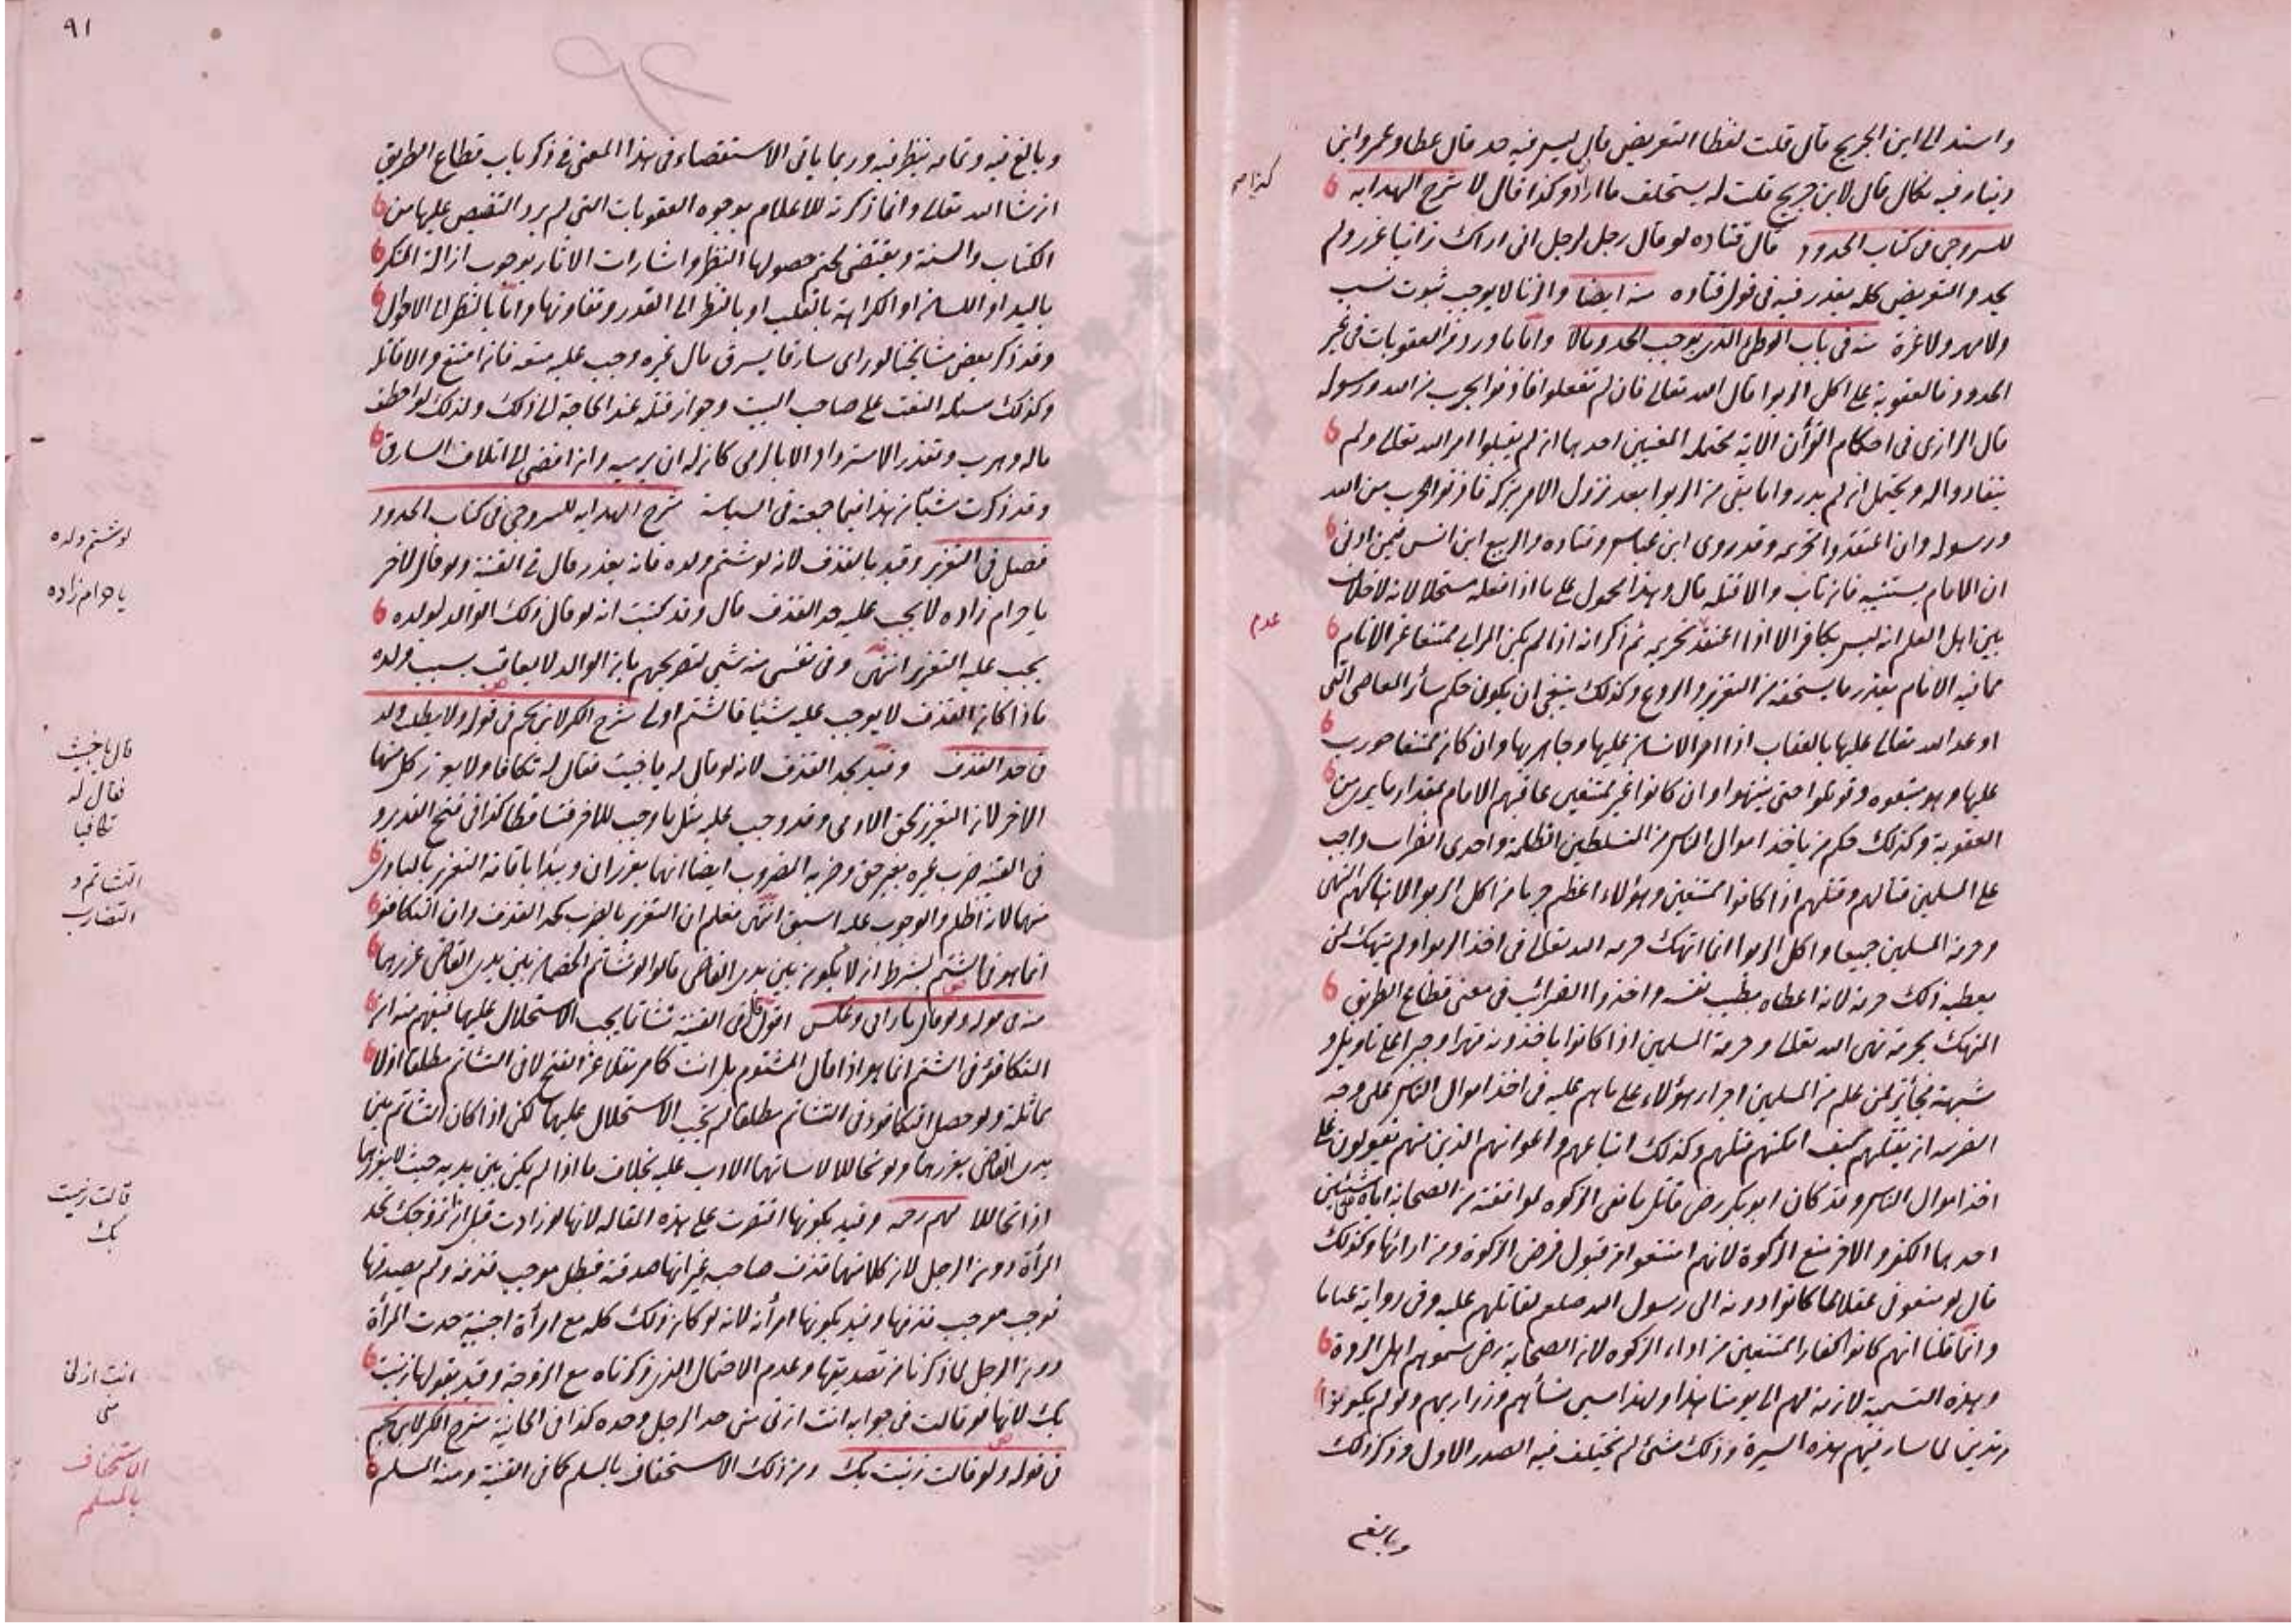 واسند الى ابن الجريج قال قلت لعطا التعريض قال ليس فيه حد قال عطا وعمرو ابن
دينار فيه نكال قال لابن جريج قلت له يستحلف ما اراد وكذا قال لا شرح الهدايه
للسروجى فى كتاب الحدود قال قتاده لو قال رجل لرجل انى اراك زانيا عزر ولم
يحد والتعريض كله يعذر فيه فى قول قتاده منه ايضا والزنا لا يوجب ثبوت نسب
ولا مهر ولا عزة منه فى باب الوطئ الذى يوجب الحد ومالا واما ما ورد من العقوبات فى غير
الحدود فالعقوبة على اكل الربوا قال الله تعالى فان لم تفعلوا فاذنوا بحرب من الله ورسوله
قال الرازى فى احكام القرأن الاية محتمله المعنيين احدهما ان لم يقبلوا امر الله تعالى ولم
ينقادوا له ويحتمل ان لم يدروا ما بقى من الربوا بعد نزول الامر بتركه فاذنوا بحرب من الله
ورسوله وان اعتقدوا تحريمه وقد روى ابن عباس وقتاده والربيع ابن انس فيمن اربى
ان الامام يستتيبه فان تاب والا قتله قال وهذا محمول على ما اذا فعله مستحلا لانه لا خلاف
بين اهل العلم انه ليس بكافر الا اذا اعتقد تحريمه ثم ذكر انه اذا لم يكن المرابى ممتنعا عن الامام
عدم
مما فيه الامام يعذر ما يستحقه من التعزير والردع وكذلك ينبغى ان يكون حكم سائر المعاصى التى
اوعد الله تعالى عليها بالعقاب اذا اصر الانسان عليها وجاهر بها وان كان ممتنعا حورب
عليها وهو متبعوه وقوتلوا حتى ينتهوا وان كانوا غير ممتنعين عاقبهم الامام بمقدار ما يرى من
العقوبة وكذلك حكم من ياخذ اموال الناس من المتسلطين الظلمة واخذى الضراب واجب
على المسلمين قتالهم وقتلهم اذا كانوا ممتنعين وهؤلاء اعظم جرما من اكل الربوا لانتهاكهم النهى
وحرمة المسلمين جميعا واكل الربوا انما انتهك حرمة الله تعالى فى اخذ الربوا ولم ينتهك لمن
يعطيه ذلك حرمة لانه اعطاه بطيب نفسه واخذوا الضرائب فى معنى قطاع الطريق
المنتهك بحرمة نهى الله تعالى وحرمة المسلمين اذا كانوا ياخذونه قهرا وجبرا على تاويل و
شبهة فجائز لمن علم من المسلمين اصرار هؤلاء على ما هم عليه فى اخذ اموال الناس على وجه
الضربه ان يقتلهم كيف امكنهم قتلهم وكذلك اتباعهم واعوانهم الذين منهم يقولون على
اخذ اموال الناس وقد كان ابو بكر رض قاتل مانعى الزكوة لموافقة من الصحابة اياه على شيئين
احدهما الكفر والاخر منع الزكوة لانهم امتنعوا من قبول فرض الزكوة ومن ادائها وكذلك
قال لو منعونى عقالا مما كانوا ادونه الى رسول الله صلعم لقاتلهم عليه وفى رواية عناقا
وانما قلنا انهم كانوا كفارا ممتنعين من اداء الزكوه لان الصحابة رض سموهم اهل الردة
وهذه التسمية لازمة لهم الى يومنا هذا ولهذا سبى نسأهم وذراريهم ولو لم يكونوا
مرتدين لما سار فيهم هذه السيرة وذلك شئ لم يختلف فيه الصدر الاول وذكر ذلك
وبالغ
٩١
وبالغ فيه وتمامه ينظر فيه وربما ياتى الاستقصاء فى هذا المعنى فى ذكر باب قطاع الطريق
ان شا الله تعالى وانما ذكرته للاعلام بوجوه العقوبات التى لم يرد التنصيص عليها من
الكتاب والسنة ويقتضى لحتم حصولها النظر واشارات الاثار بوجوب ازالة المنكر
باليد او اللسان او الكراهة بالقلب او بالنظر الى القدر وتفاوتها واما بالنظر الى الاحوال
وقد ذكر بعض مشايخنا لو راى سارقا يسرق مال غيره وجب عليه منعه فان امتنع والا قاتله
وكذلك مسئله النقب على صاحب البيت وجواز قتله عند الحاجة الى ذلك وكذلك لو اخطف
ماله وهرب وتعذر الاسترداد الا بالرمى كان له ان يرميه وان افضى الى اتلاف السارق
وقد ذكرت شيئا من هذا فيما جمعته فى السياسة شرح الهدايه للسروجى فى كتاب الحدود
فصل فى التعزير وقيد بالقذف لانه لو شتم ولده فانه يعذر قال فى القنية ولو قال لاخر
يا حرام زاده لا يجب عليه حد القذف قال وقد كتبت انه لو قال ذلك الوالد لولده
يجب عليه التعزير انتهى وفى نفسى منه شئ لتصريحهم بان الوالد لا يعاقب بسبب ولده
فاذا كان القذف لا يوجب عليه شيئا فالشتم اولى شرح الكنز لابن نجيم فى قوله ولا يطلب ولد
فى حد القذف وقيد بحد القذف لانه لو قال له يا خبيث فقال له تكافا ولا يعزر كل منهما
الاخر لان التعزير لحق الادمى وقد وجب عليه مثل ما وجب للاخر فتساقطا كذا فى فتح القدير و
فى القنية ضرب غيره بغير حق وضربه المضروب ايضا انهما يعزران ويبدا باقامة التعزير بالبادى
منهما لانه اظلم والوجوب عليه اسبق انتهى فعلم ان التعزير بالضرب كحد القذف وان التكافؤ
انما هو فى الشتم بشرط ان لا يكون بين يدى القاضى قالوا لو تشاتم الخصمان بين يدى القاضى عزرهما
منه فى قوله ولو قال يا زانى وعكس اقول فى القنية تشاتما يجب الاستحلال عليهما فيفهم منه ان
التكافؤ فى الشتم انما هو اذا قال المشتوم بل انت كما مر نقلا عن الفتح لا فى التشاتم مطلقا اذ لا
مماثلة ولو حصل التكافؤ فى التشاتم مطلقا لم يجب الاستحلال عليهما لكن اذا كان التشاتم بين
يدى القاضى يعزرهما ولو تحاللا لاساتهما الادب عليه بخلاف ما اذا لم يكن بين يديه حيث لا يعزرهما
اذا تحاللا وقيد بكونها اقتصرت على هذه المقاله لانها لو زادت قبل ان اتزوجك تحد
المرأة دون الرجل لان كلا منهما قذف صاحبه غير انها صدقته فبطل موجب قذفه ولم يصدقها
فوجب موجب قذفها وقيد بكونها امرأته لانه لو كان ذلك كله مع امرأة اجنبية حدت المرأة
دون الرجل لما ذكرنا من تصديقها وعدم الاحتمال الذى ذكرناه مع الزوجة وقيد بقولها زنيت
بك لانها لو قالت فى جوابه انت ازنى منى حد الرجل وحده كذا فى الخانية شرح الكنز لابن نجيم
فى قوله ولو قالت زنيت بك ومن ذلك الاستخفاف بالمسلم كما فى القنية ومنه السلم
لو شتم ولده
يا حرام زاده
قال يا خبيث
فقال له
تكافيا
التشاتم و
التضارب
قالت زنيت
بك
انت ازنى
منى
الاستخفاف
بالمسلم